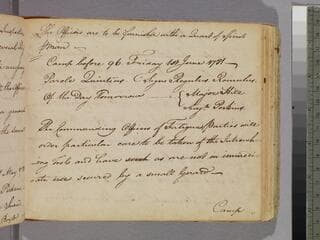 The Officers are to be furnished with a Quart of Spirits
Camp before 96 Friday 1st June 1781
Parole Quintius C Signs Regulus Romulus
Of the Day Tomorrow { Majors Hill
Perkins
The Commanding Officers of Fatigue Parties will
order particular care to be taken of the Intrench
ing Tools and have such as are not in immedi
ate use secured by a small Guard
Camp